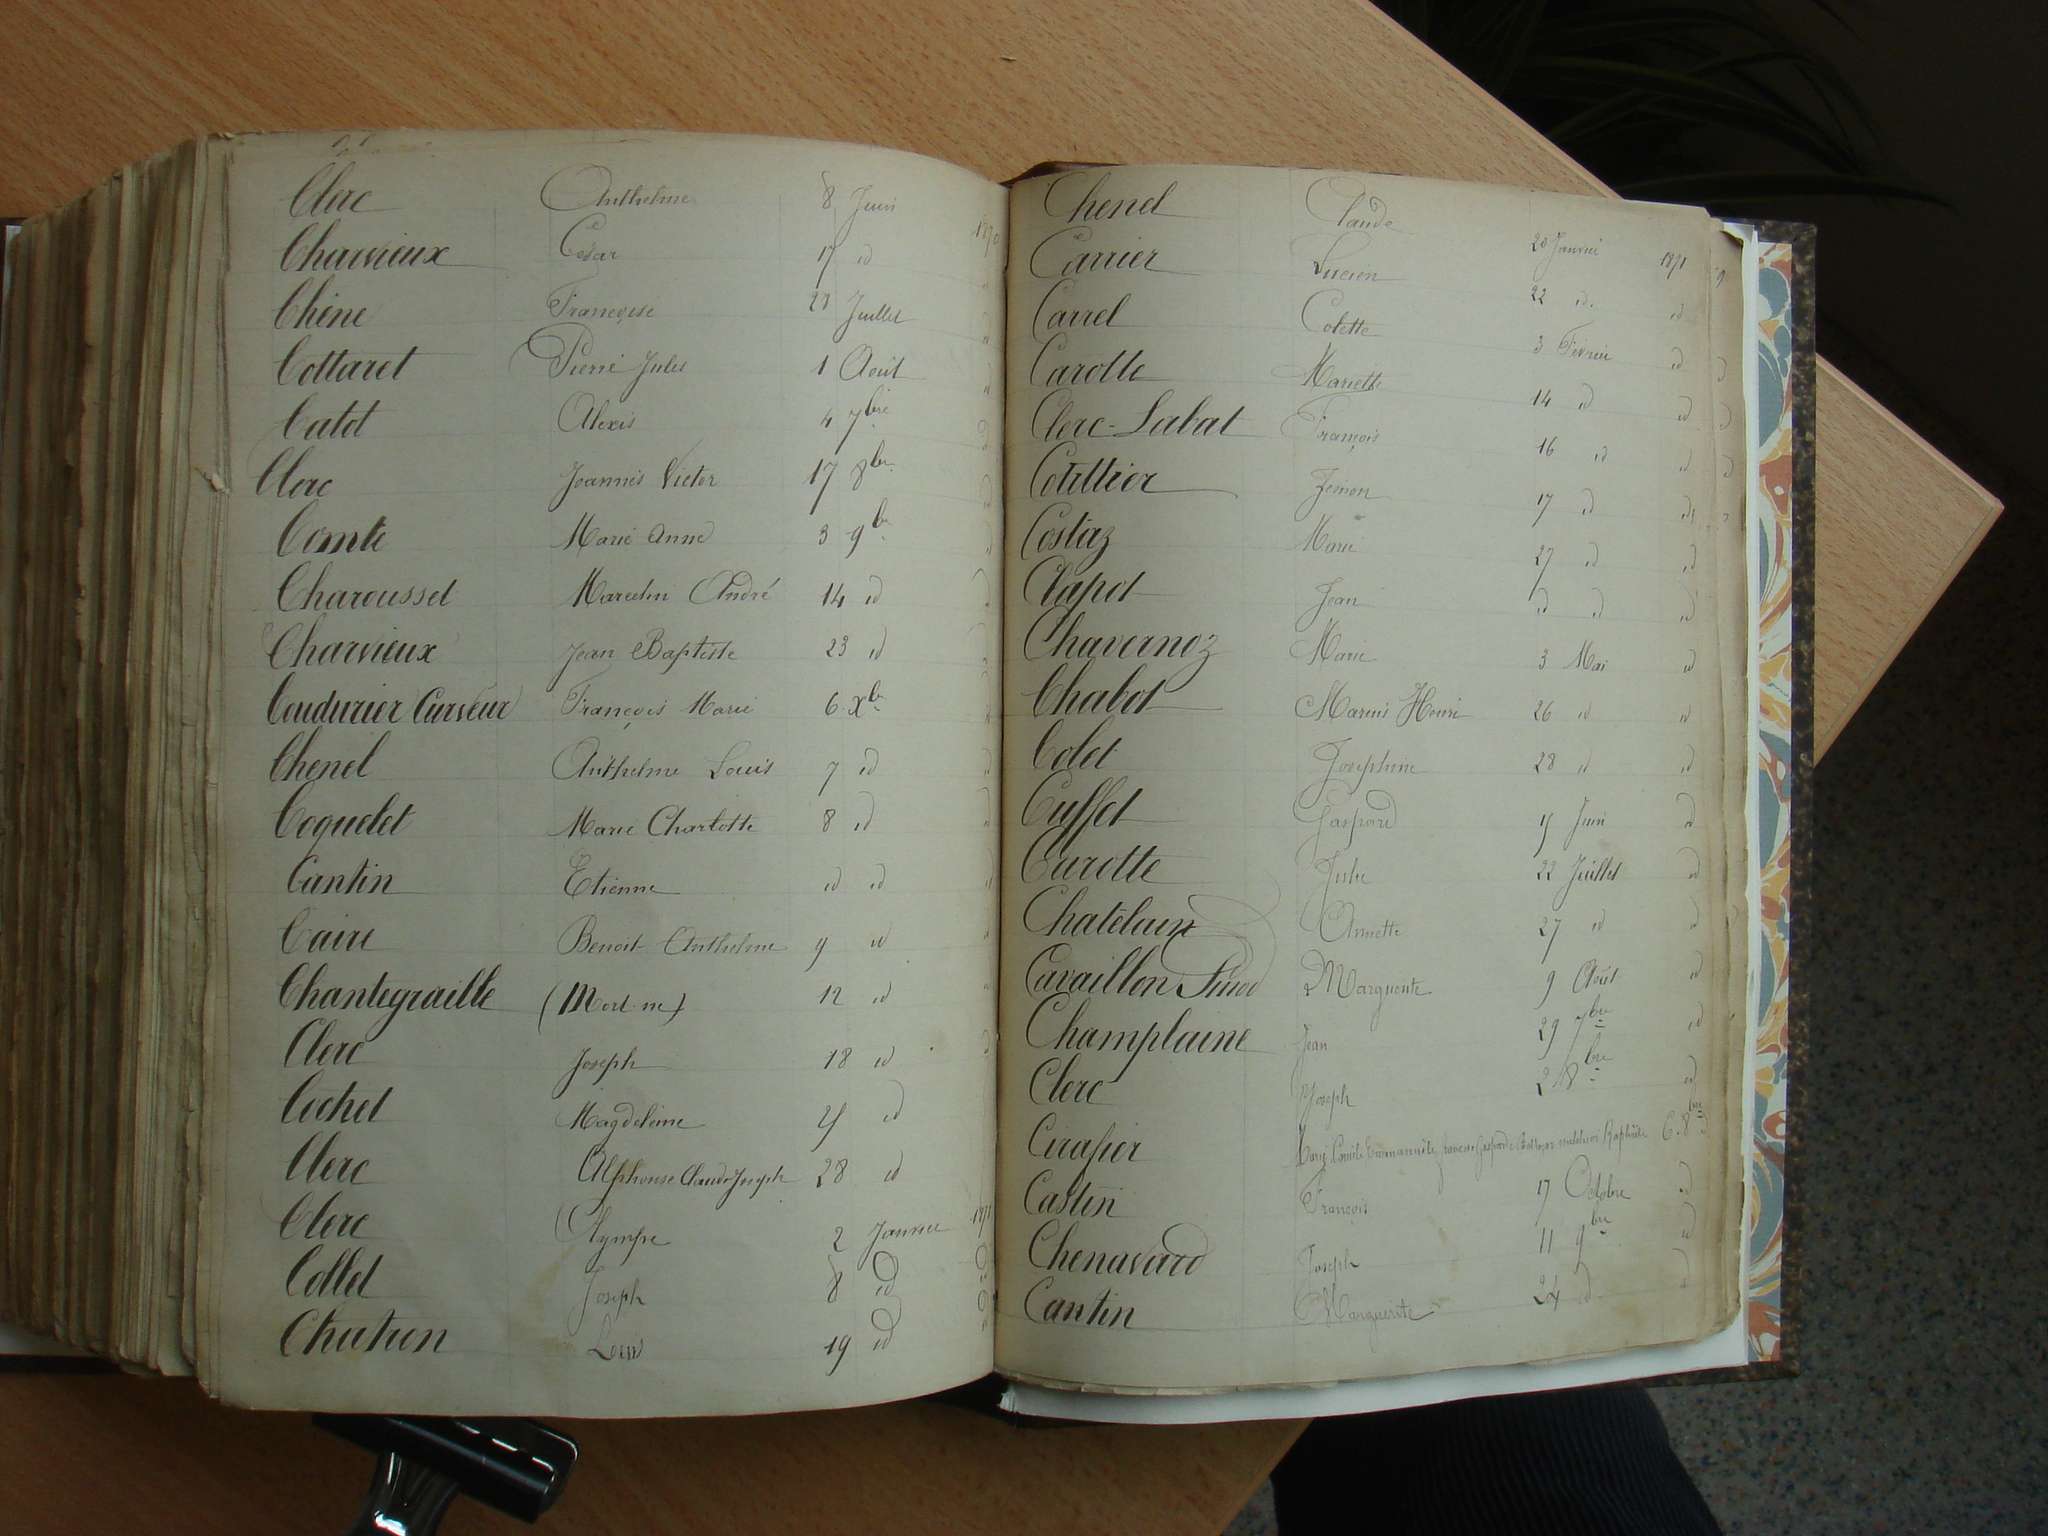 Clerc Anthelme 8 Juin 1870
Charvieux César 17 id
Chêne Françoise 28 Juillet
Cottaret Pierre Jules 1 Août
Catot Alexis 4 7bre
Clerc Joannès Victor 17 8bre
Comte Marie Anne 3 9bre
Charousset Marcelin André 14 id
Charvieux Jean Baptiste 23 id
Coudurier Curveur François Marie 6 Xbre
Chenel Anthelme Louis 7 id
Coquelet Marie Charlotte 8 id
Cantin Etienne id id
Caire Benoit Anthelme 9 id
Chantegraille (Mort-né) 12 id
Clerc Joseph 18 id
Cochet Magdeleine id
Clerc Alphonse Claude Joseph 28 id
Clerc Olympe 2 Janvier 1871
Collet Joseph 8 id id
Chatron Louis 19 id id
Chenel Claude 20 Janvier 1871
Carrier Lucien 22 id id
Carrel Colette 3 Février id
Carotte Mariette 14 id id
Clerc-Labat François 16 id id
Cotittier 17 id id
Costaz Marie 27 id id
Clapot Jean id id id
Chavernoz Marie 3 Mai id
Chabot Marius Henri 26 id id
Colet Josephine 28 id id
Cuffet Gaspard Juin id
Carotte Julie 22 Juillet id
Chatelain Annette 27 id id
Cavaillon Marguerite 9 Août id
Champlaine Jean 29 7bre id
Clerc Joseph 2 8bre id
Cirafier Marie Camille Emmanuèle Raphaële 6 8bre
Castin François 17 Octobre id
Chenavard Joseph 11 9bre id
Cantin Marguerite 24 id id